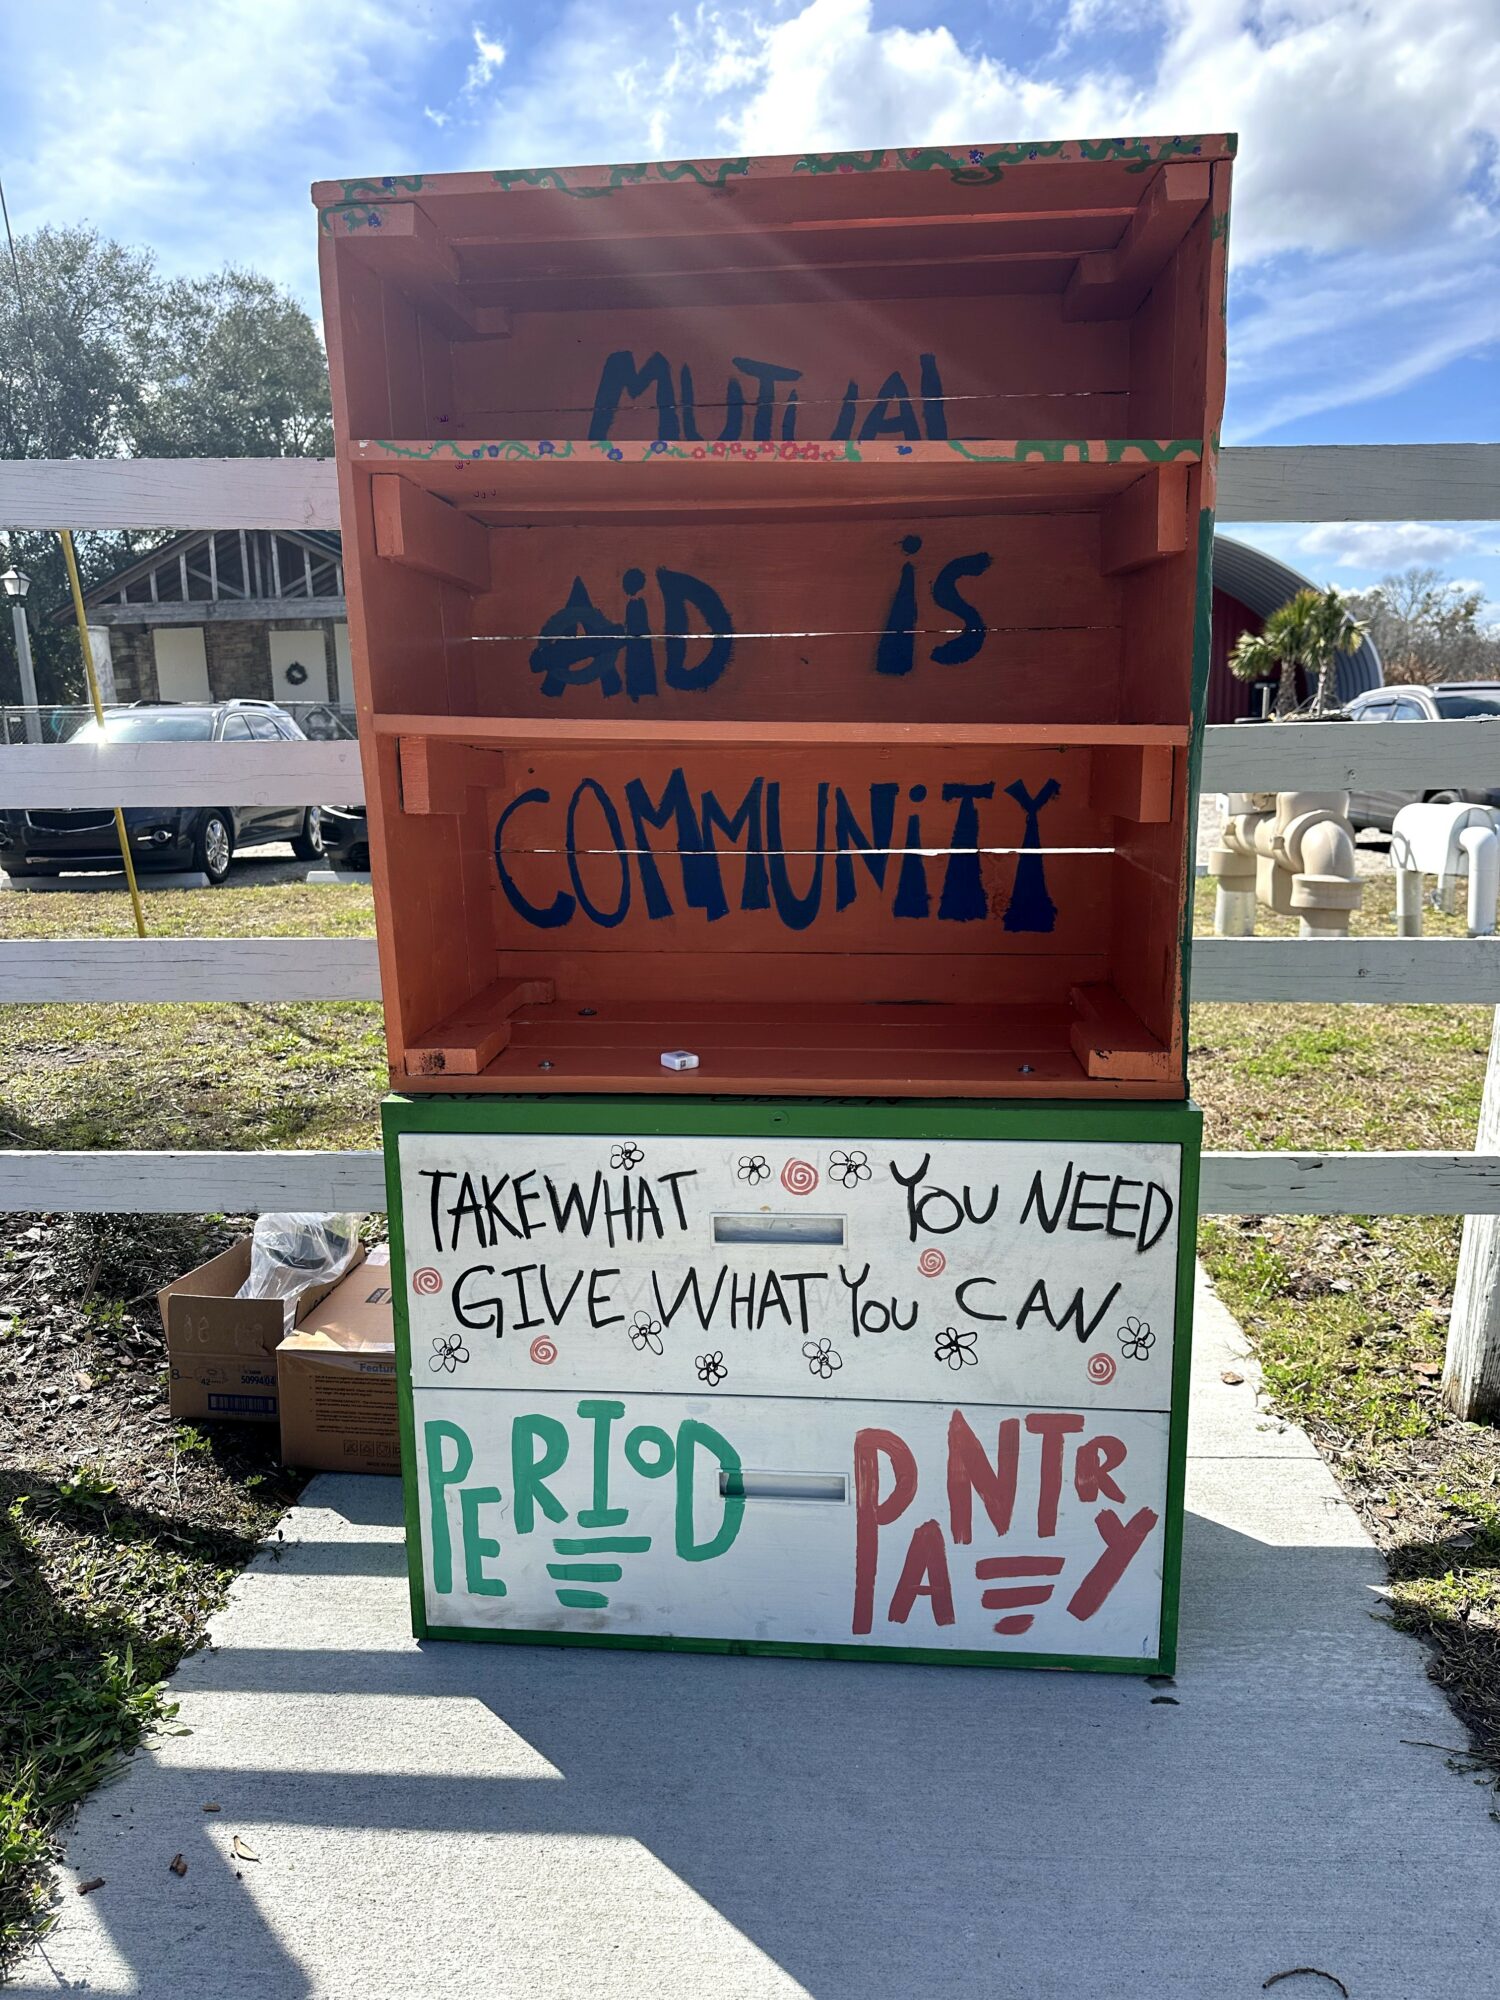 MUTUAL
AiD iS
COMMUNiTY
TAKE WHAT YOU NEED
GIVE WHAT YOU CAN
PERIOD PANTRY
8
42
509940
Featur